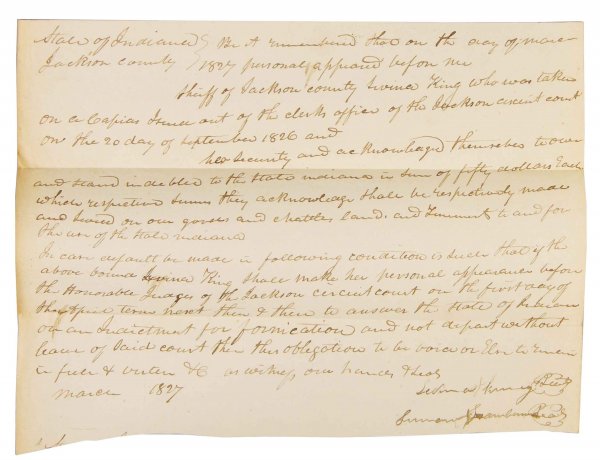 State of Indiana } Be it remembered that on the day of march
Jackson county } 1827 personal appeared before me
Shiff of Jackson county Lovina King who was taken
on a Capias Isued out of the clerks office of the Jackson circuit court
on the 20 day of September 1826 and
her Security and acknowledged themselves to owe
and stand indebted to the State indiana in sum of fifty dollars Each
which respective sums they acknowledge shall be respectively made
and levied on our goods and chattles land and tenements to and for
the use of the State indiana
In case default be made in following condition is such that if the
above bound King shall make her personal appearance before
the Honorable Judges of the Jackson circuit court on the first day of
their april term next then & there to answer the State of Indiana
on an indictment for fornication and not depart without
leave of Said court then this obligation to be void or Else to Remain
in full & vertue &C as witness our hands & Seals
march 1827
King Seal
Seal